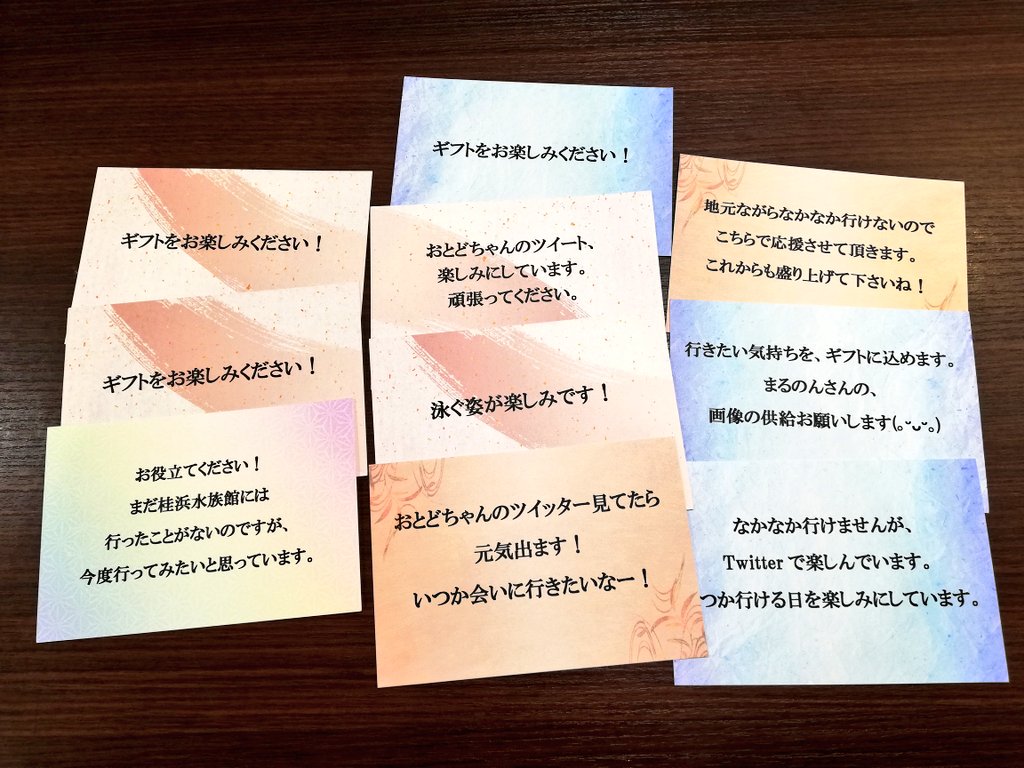 ギフトをお楽しみください!
ギフトをお楽しみください!
ギフトをお楽しみください!
お役立てください!
まだ桂浜水族館には
行ったことがないのですが、
今度行ってみたいと思っています。
おとどちゃんのツイート、
楽しみにしています。
頑張ってください。
泳ぐ姿が楽しみです!
おとどちゃんのツイッター見てたら
元気出ます!
いつか会いに行きたいなー!
地元ながらなかなか行けないので
こちらで応援させて頂きます。
これからも盛り上げて下さいね!
行きたい気持ちを、ギフトに込めます。
まるのんさんの、
画像の供給お願いします(。˘ᴗ˘。)
なかなか行けませんが、
Twitterで楽しんでいます。
つか行ける日を楽しみにしています。